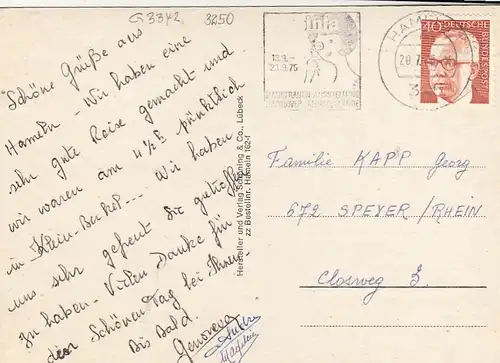 G3342 3250
Schöne Grüße aus
Hameln - Wir haben eine
sehr gute Reise gemacht und
wir waren am 4½ pünktlich
in Klein-Berkel --- Wir haben
uns sehr gefreut Sie getroffen
zu haben - Vielen Danke für
den Schönen Tag bei Ihnen
Bis Bald.
Genoveva
Hersteller und Verlag Schöning & Co., Lübeck
zz Bestellnr. Hameln 162-f
13.9.-
21.9.75
HAMELN
40
DEUTSCHE
BUNDESPOST
Familie KAPP Georg
672 SPEYER/RHEIN
Closweg